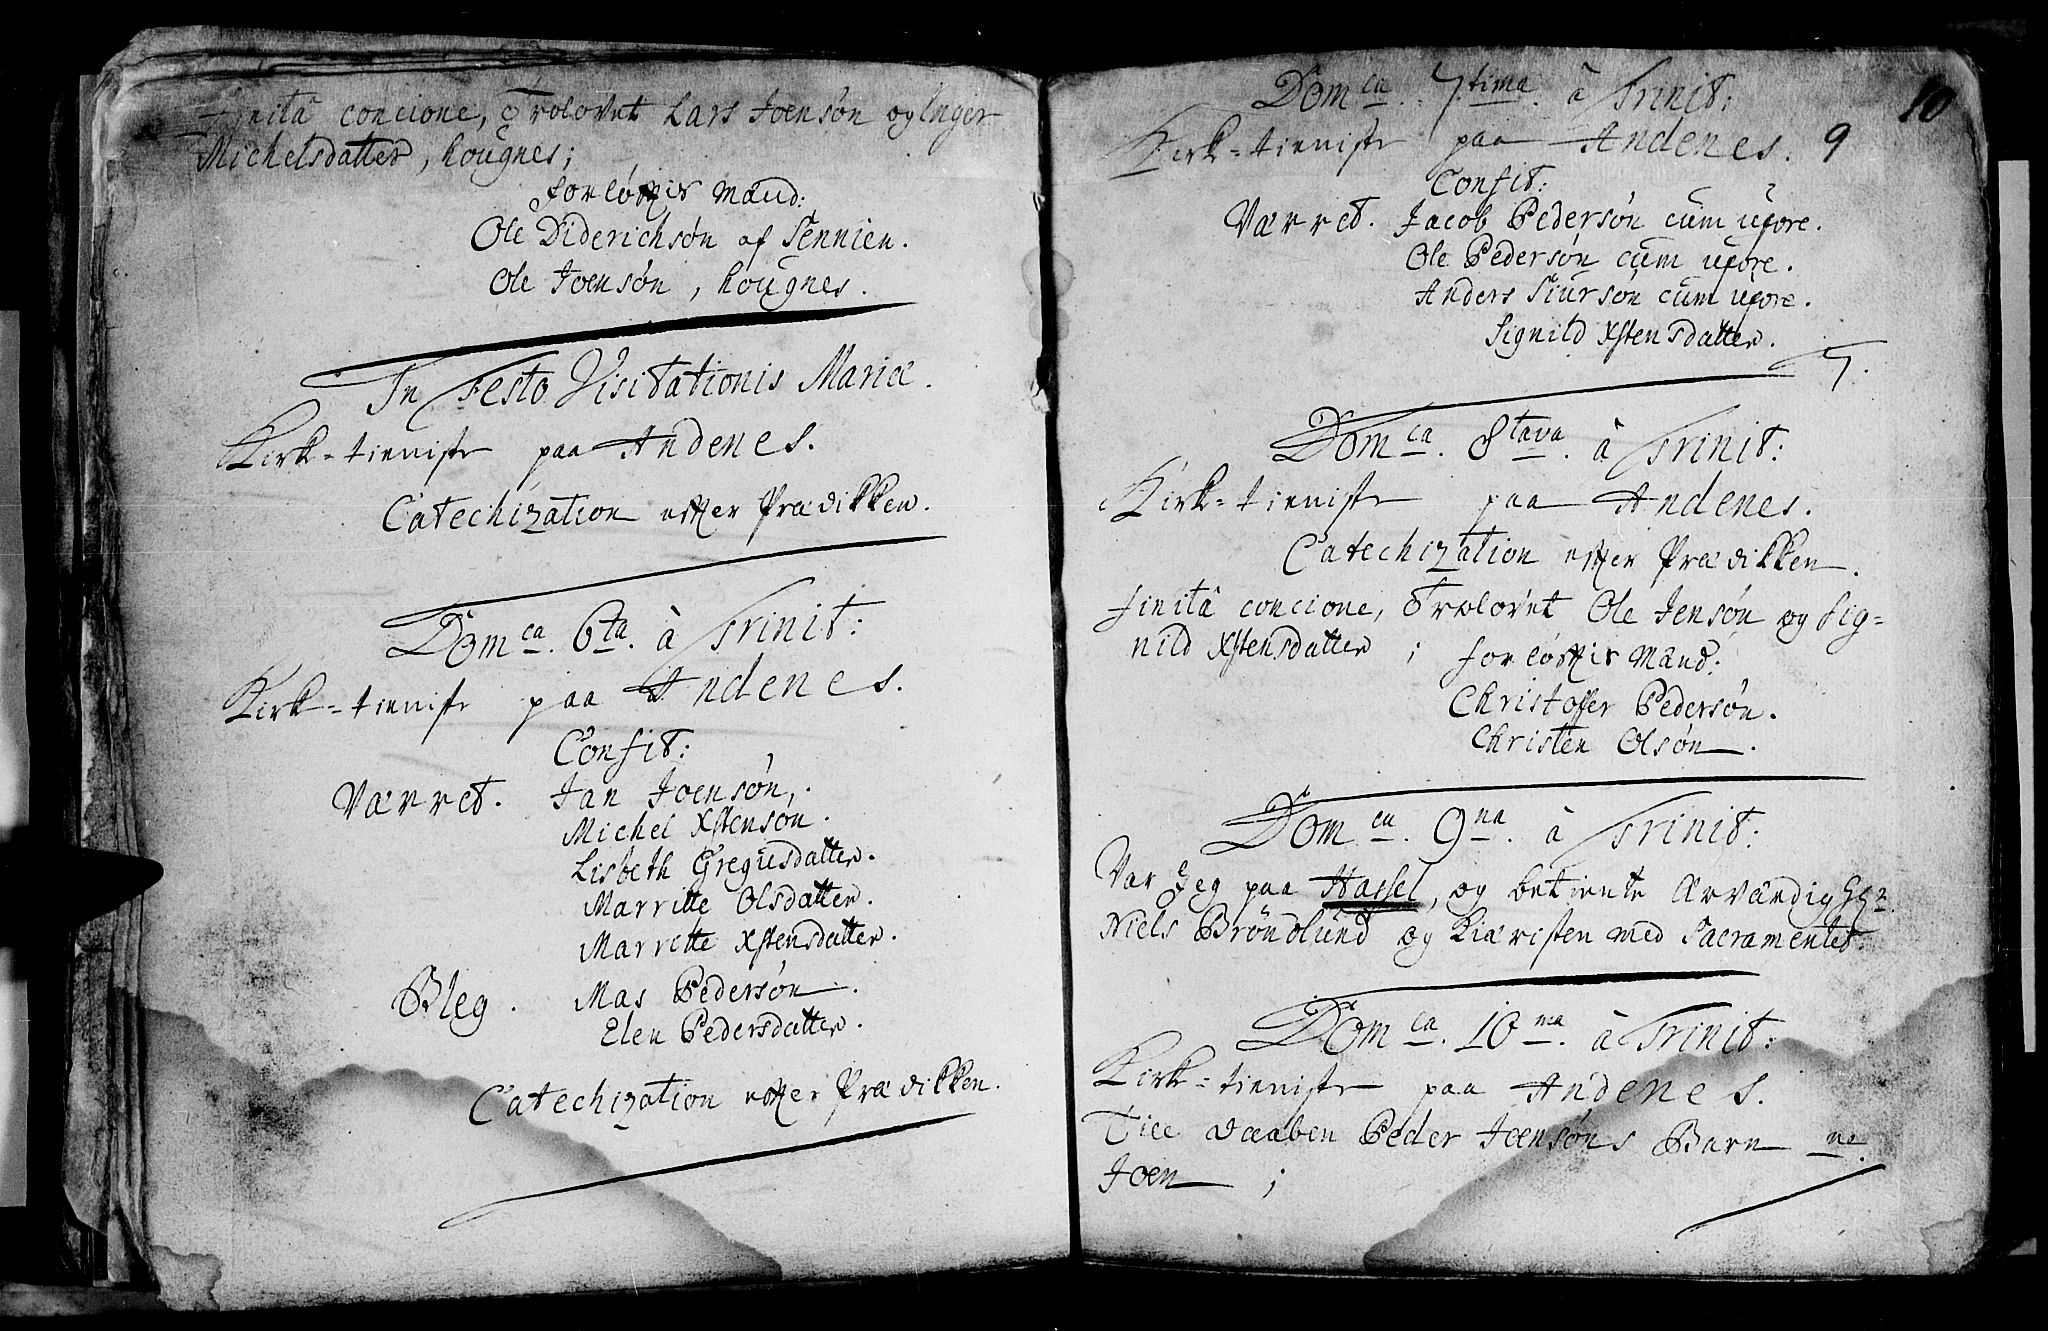 Finitâ concione, Trolovet Lars Joensøn og Inger
Michelsdatter, hougnes;
forløftis mænd:
Ole Diderichsøn af Sennien.
Ole Joensøn, hougnes.
In Festo Visitationis Mariæ.
Kirk-tieniste paa Andenes.
Catechization efter Prædikken.
Dom ca. 6ta. à Trinit:
Kirk-tieniste paa Andenes.
Confit:
Værret. Jan Joensøn,.
Michel Xstensøn.
Lisbeth Gregusdatter.
Marritte Olsdatter.
Marritte Xstensdatter.
Bleg. Mas Pedersøn.
Elen Pedersdatter.
Catechization efter Prædikken.
10
Dom ca. 7tima. à Trinit:
Kirk-tieniste paa Andenes. 9
Confit:
Værret. Jacob Pedersøn cum uxore.
Ole Pedersøn cum uxore.
Anders Siursøn cum uxore.
Signild Xstensdatter.
7.
Dom ca. 8tava. à Trinit:
Kirk-tieniste paa Andenes.
Catechization efter Prædikken.
finitâ concione, Trolovet Ole Jensøn og Sig=
nild Xstensdatter; forløftis mænd:
Christoffer Pedersøn.
Christen Olsøn.
Dom ca. 9na. à Trinit:
Var Jeg paa Hassel, og betiente Ærværdig Hr.
Niels Brøndlund og Kiæristen med Sacramentet.
Dom ca. 10ma. à Trinit:
Kirk-tieniste paa Andenes.
Till daaben Peder Joensøns Barn ne.
Joen;